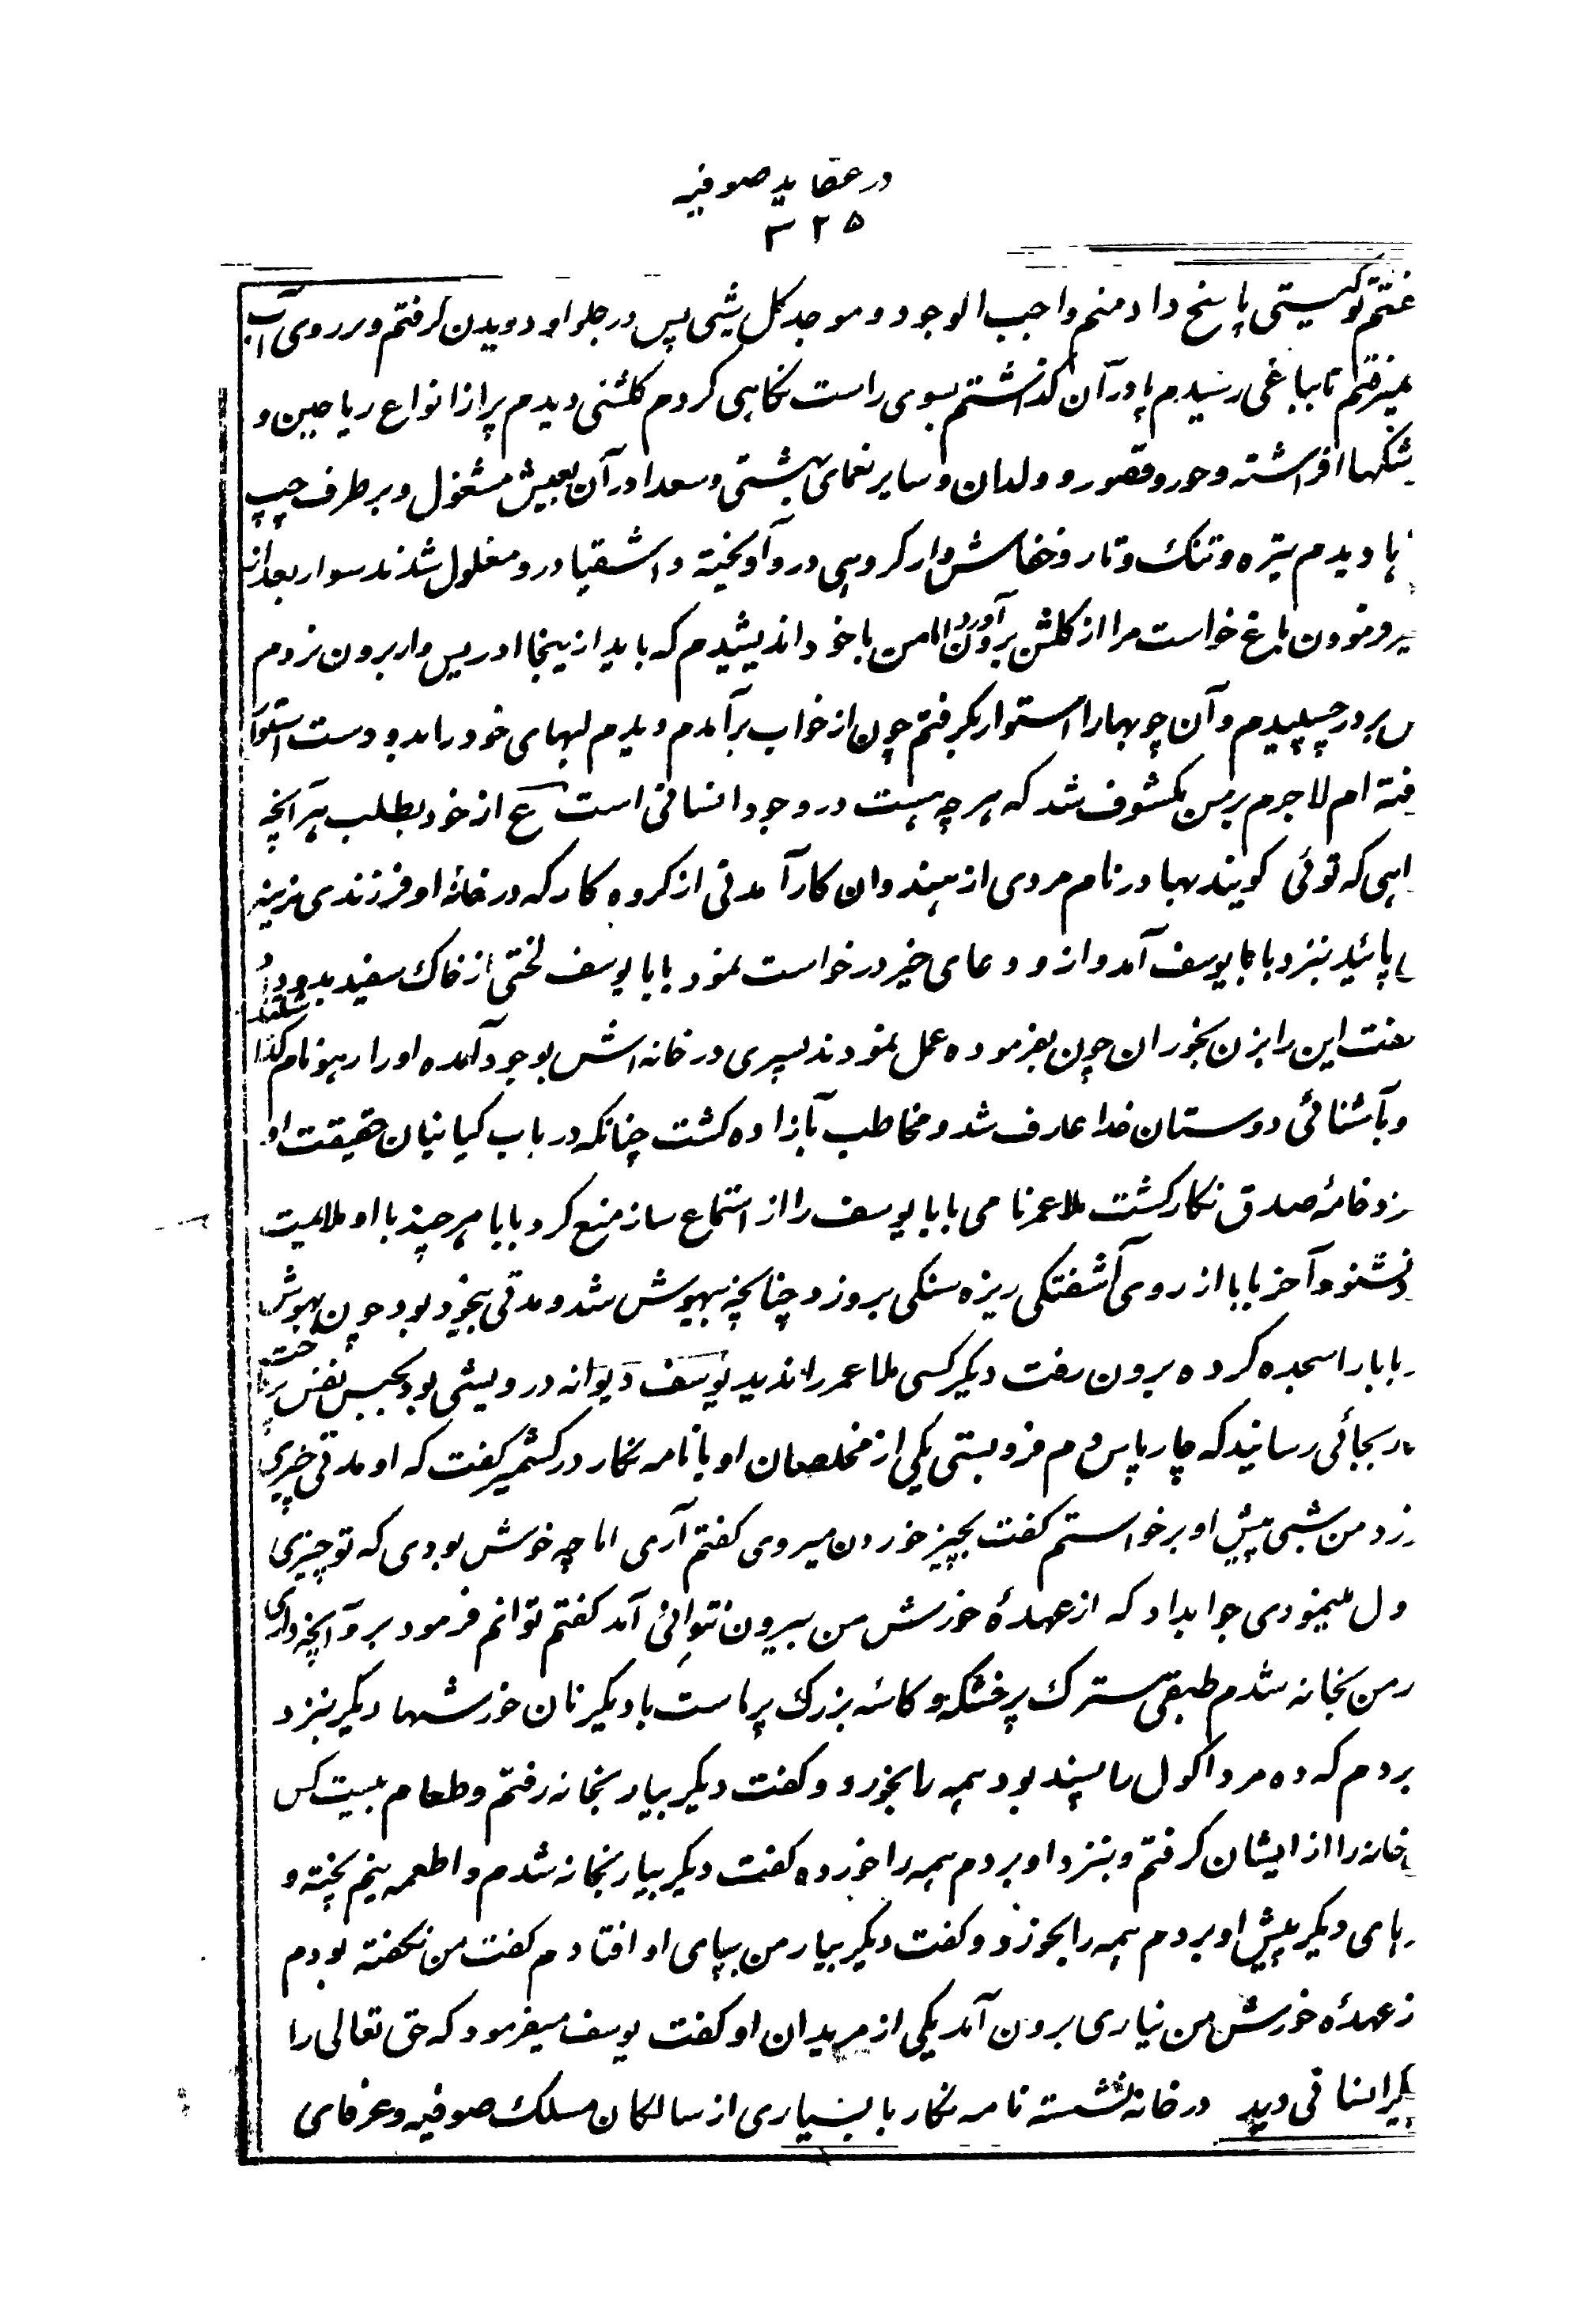 در عقاید صوفیه
۳۲۵
فتم تو کیستی پاسخ داد منم واجب الوجود و موجد کل شیی پس در جلو او دویدن کرفتم و بر روی آب
میرفتم تا بباغی رسیدم پا در آن کذاشتم بسوی راست نکاهی کردم کلشنی دیدم پر از انواع ریاحین و
شکهها افراشته و حور و قصور و ولدان و سایر نعمای بهشتی و سعدا در آن بعیش مشغول و بر طرف چپ
ها دیدم تیره و تنک و تار و خفاش وار کروهی در و آویخته و اشقیا در و مغلول شدند سوار بعد از
یر نمودن باغ خواست مرا از کلشن برون آورد اما من با خود اندیشیدم که باید ازینجا ادریس وار برون نردم
س بر در چسپیدم و آن چوبها را استوار بکرفتم چون از خواب برآمدم دیدم لبهای خود را بدو دست استوار
فته ام لاجرم بر من مکشوف شد که هر چه هست در وجود انسانی است ع از خود بطلب هر آنچه
اهی که توئی کویند بهادر نام مردی از هندوان کارآمدنی از کروه کار که در خانهٔ او فرزندی نرینه
ی پائید بنزد بابا یوسف آمد و ازو دعای خیر درخواست نمود بابا یوسف لختی از خاک سفید بدو داد
فت این را بزن بخوران چون بفرموده عمل نمودند پسری در خانه اش بوجود آمده او را رهو نام کذاشتند
و بآشنائی دوستان خدا عارف شد و مخاطب بآزاده کشت چنانکه در باب کیانیان حقیقت او
زد خامهٔ صدق نکار کشت ملا عمر نامی بابا یوسف را از استماع ساز منع کرد بابا هر چند با او ملایمت
د نشنود آخر بابا از روی آشفتکی ریزه سنکی برو زد چنانچه بیهوش شد و مدتی بیخود بود چون بهوش
بابا را سجده کرده برون رفت دیکر کسی ملا عمر را ندید یوسف دیوانه درویشی بود بحبس نفس پرداخت
ار بجائی رسانید که چار پاس دم فرو بستی یکی از مخلصان او با نامه نکار در کشمیر کفت که او مدتی چیزی
زد من شبی پیش او برخواستم کفت بچیز خوردن میروی کفتم آری اما چه خوش بودی که تو چیزی
ول مینمودی جواب داد که از عهدهٔ خورش من بیرون نتوانی آمد کفتم توانم فرمود برو آنچه داری
ر من بخانه شدم طبقی سترک پر خشکه و کاسه بزرک پر ماست با دیکر نان خورشها دیکر بنزد
بردم که ده مرد اکول را بسند بود همه را بخورد و کفت دیکر بیار بخانه رفتم و طعام بیست کس
خانه را از ایشان کرفتم و بنزد او بردم همه را خورده کفت دیکر بیار بخانه شدم و اطعمه نیم پخته و
های دیکر پیش او بردم همه را بخورد و کفت دیکر بیار من بپای او افتادم کفت من نکفته بودم
ز عهدهٔ خورش من نیاری برون آمد یکی از مریدان او کفت یوسف میفرمود که حق تعالی را
یکر انسانی دید در خانه نشسته نامه نکار با بسیاری از سالکان مسلک صوفیه و عرفای